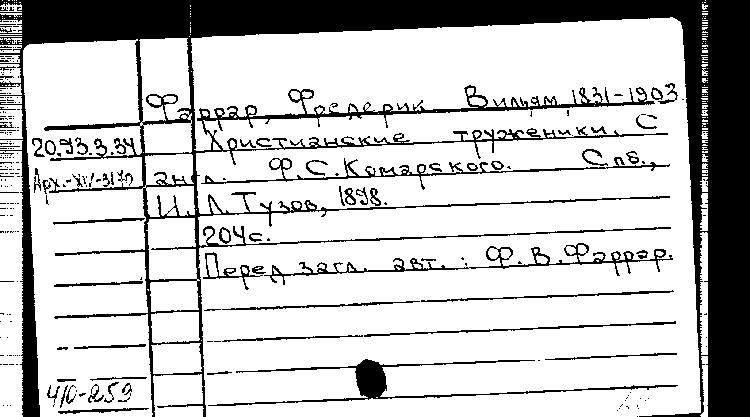 Фаррар, Фредерик Вильям, 1831-1903
20.73.3.34 Христианские труженики. С
Арх.-XIV-3170 англ. Ф.С.Комарского. Спб.,
И. Л. Тузов, 1898.
204с.
Перед загл. авт.: Ф.В.Фаррар.
410-259